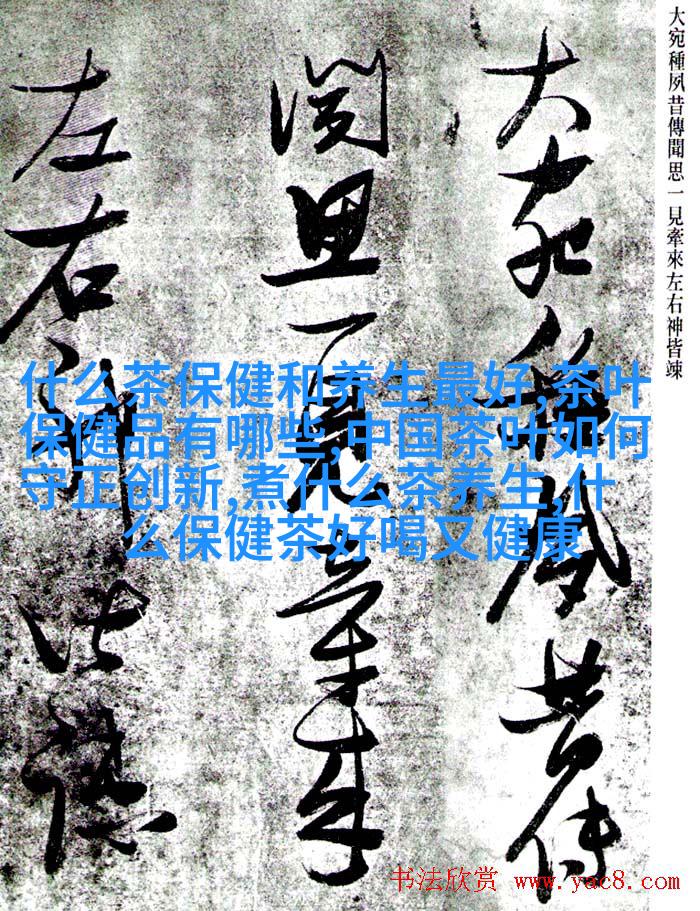 大宛種夙昔傳聞思一見牽來左右神皆竦
大宛種夙昔傳
聞思一見牽來
左右神皆竦
什么茶保健和养生最好,茶叶
保健品有哪些,中国茶叶如何
守正创新,煮什么茶养生,什
么保健茶好喝又健康
书法欣赏 www.yac8.com